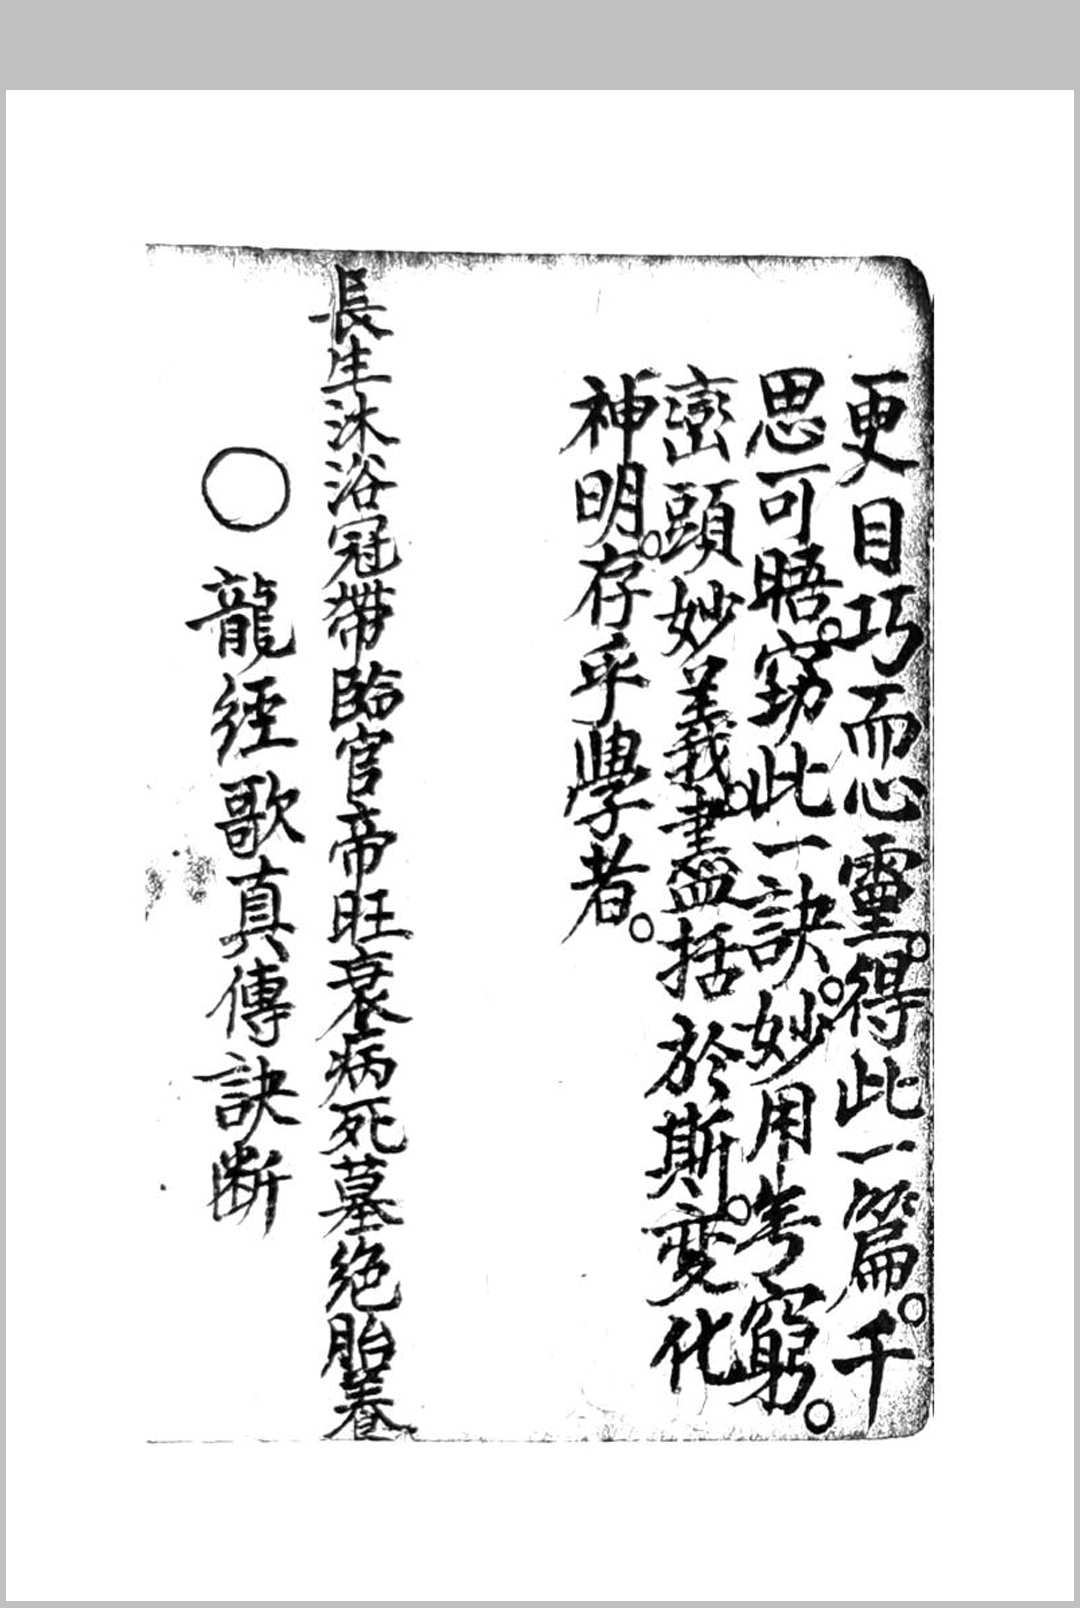 更目巧而心靈。得此一篇。千
思可晤。窮此一訣。妙用無窮。
巒頭妙義。盡括於斯。変化
神明。存乎學者。
長生沐浴冠帶臨官帝旺衰病死墓絶胎養
〇龍經歌真傳訣断